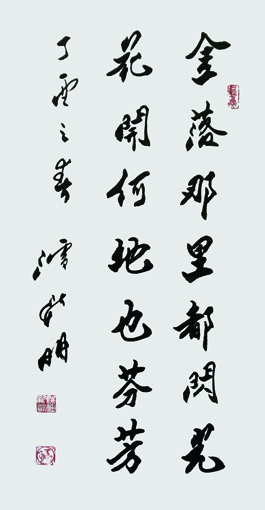 金落那里都閃光
花開何地也芬芳
丁酉之春 秋明